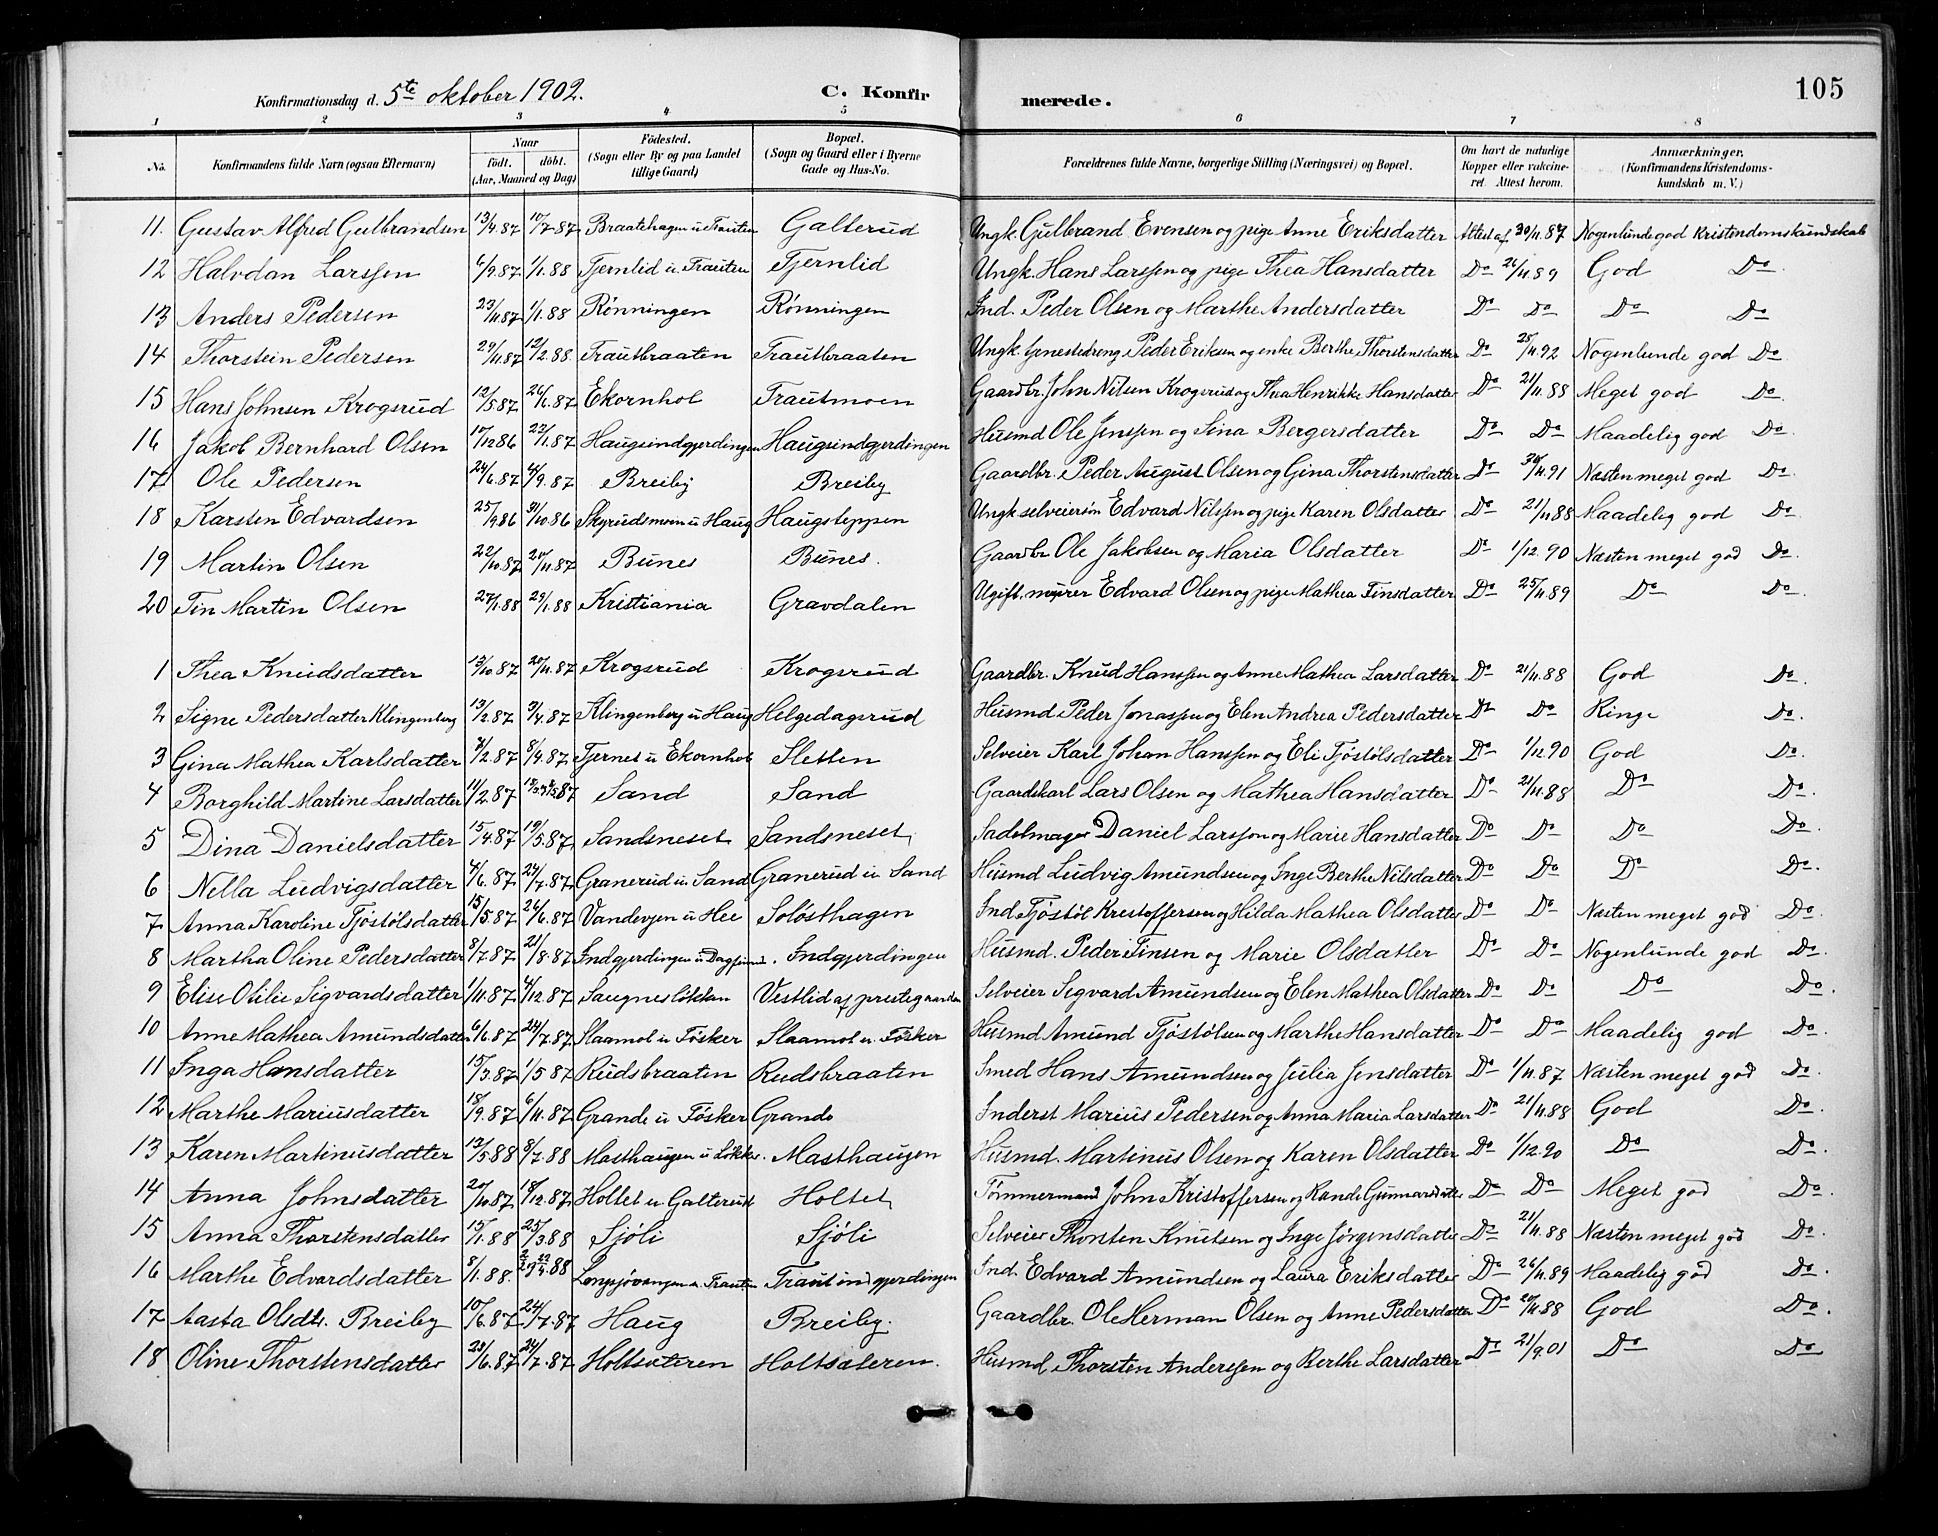 Konfirmationsdag d. 5te oktober 1902. C. Konfir merede. 105
1 2 3 4 5 6 7 8
No. Konfirmandens fulde Navn (ogsaa Efternavn) Naar födt. döbt. (Aar, Maaned og Dag) Födested. (Sogn eller By og paa Landet tillige Gaard) Bopæl. (Sogn og Gaard eller i Byerne Gade og Hus-No. Forældrenes fulde Navne, borgerlige Stilling (Næringsvei) og Bopæl. Om havt de naturlige Kopper eller vakcineret. Attest herom. Anmærkninger. (Konfirmandens Kristendomskundskab m. V.)
11. Gustav Alfred Gulbrandsen 13/4.87 10/7.87 Braatehagen u Trauten Galterud Ungk. Gulbrand Evensen og pige Anne Eriksdatter Attest af 30/11.87 Nogenlunde god Kristendomskundskab
12 Halvdan Larssen 6/9.87 1/1.88 Tjernlid u Trauten Tjernlid Ungk. Hans Larssen og pige Thea Hansdatter Do 26/11.89 God Do
13 Anders Pedersen 23/11.87 1/1.88 Rønningen Rønningen Ind. Peder Olsen og Marthe Andersdatter Do Do Do Do
14 Thorstein Pedersen 29/11.87 12/2.88 Trautbraaten Trautbraaten Ungk. tjenestedreng Peder Eriksen og enke Berthe Thorstensdatter Do 25/11.92 Nogenlunde god Do
15 Hans Johnsen Krogsrud 12/5.87 26/6.87 Ekornhol Trautmoen Gaardbr. John Nilsen Krogsrud og Thea Henrikke Hansdatter Do 21/11.88 Meget god Do
16 Jakob Bernhard Olsen 10/12 86 23/1.87 Haugsindgjerdingen Haugsindgjerdingen Husmd Ole Jenssen og Sina Bergersdatter Do Do Maadelig god Do
17 Ole Pedersen 24/6.87 4/9.87 Breiby Breiby Gaardbr. Peder August Olsen og Gina Thorstensdatter Do 30/11.91 Næsten meget god Do
18 Karsten Edvardsen 25/9 86 31/10.86 Skyrudsmoen u Haug Haugsteppen Ungk selveiersøn Edvard Nilssen og pige Karen Olsdatter Do 21/11 88 Maadelig god Do
19 Martin Olsen 22/10.87 20/11.87 Bunes Bunes. Gaardbr Ole Jakobsen og Maria Olsdatter Do 1/12.90 Næsten meget god Do.
20 Fin Martin Olsen 27/1.88 29/1.88 Kristiania Gravdalen Ugift. murer Edvard Olsen og pige Mathea Finsdatter Do 25/11.89 Do Do.
1 Thea Knudsdatter 13/10.87 20/11.87 Krogsrud Krogsrud Gaardbr. Knud Hanssen og Anne Mathea Larsdatter Do 21/11.88 God Do.
2 Signe Pedersdatter Klingenberg 13/2.87 9/4.87 Klingenberg u Haug Helgedagsrud Husmd Peder Jonassen og Elen Andrea Pedersdatter Do Do Ringe Do.
3 Gina Mathea Karlsdatter /2.87 8/4.87 Tjernet u Ekornhol Sletten Selveier Karl Johan Hanssen og Eli Tjøstølsdatter Do 1/12.90 God Do
4 Borghild Martine Larsdatter 11/2.87 Sand Sand Gaardskarl Lars Olsen og Mathea Hansdatter Do 21/11.88 Do Do.
5 Dina Danielsdatter 15/4.87 19/5.87 Sandsneset Sandsneset Sadelmager Daniel Larssen og Marie Hansdatter Do Do Do Do.
6 Nella Ludvigsdatter 4/6.87 24/7.87 Granerud u Sand Granerud u Sand Husmd Ludvig Amundsen og Inge Berthe Nilsdatter Do Do Do Do.
7 Anna Karoline Tjøstølsdatter 15/5.87 26/6.87 Vandevjen u Hee Soløsthagen Ind Tjøstøl Krestoffersen og Hilda Mathea Olsdatter Do Do Næsten meget god Do.
8 Martha Oline Pedersdatter 8/7.87 21/8.87 Indgjerdingen u. Indgjerdingen Husmd. Peder Finsen og Marie Olsdatter Do Do Nogenlunde god Do.
9 Elise Otilie Sigvardsdatter 1/11.87 4/12.87 Saugnesløkken Vestlid af prestegaarden Selveier Sigvard Amundsen og Elen Mathea Olsdatter Do Do Do Do.
10 Anne Mathea Amundsdatter 6/6.87 24/7.87 Slaamol u Fösker Slaamol u. Fösker Husmd Amund Tjøstølsen og Marthe Hansdatter Do Do Maadelig god Do.
11 Inga Hansdatter 15/3.87 1/5 87 Rudsbraaten Rudsbraaten Smed Hans Amundsen og Julia Jensdatter Do 1/11.87 Næsten meget god Do.
12 Marthe Mariusdatter 18/9.87 6/11.87 Grande u Fösker Grande Inderst Marius Pedersen og Anna Maria Larsdatter Do 21/11.88 God Do.
13 Karen Martinusdatter 13/5 88 8/7.88 Masthaugen u Løkke. Masthaugen Husmd. Martinus Olsen og Karen Olsdatter Do 1/12.90 Do Do.
14 Anna Johnsdatter 20/10.87 18/12.87 Holtet u Galterud Holtet Tømmermand John Kristoffersen og Rande Gunnarsdatter Do Do Meget god Do.
15 Anna Thorstensdatter 15/1.88 25/3.88 Sjöli Sjöli Selveier Thorsten Knutsen og Inge Jørgensdatter Do 21/11.88 Næsten meget god Do.
16 Marthe Edvardsdatter 8/1.88. u. Trauten Trautindgjerdingen Ind. Edvard Amundsen og Laura Eriksdatter Do 26/11.89 Maadelig god Do.
17 Aasta Olsdtr. Breiby 10/6.87 24/7.87 Haug Breiby. Gaardbr. Ole Herman Olsen og Anne Pedersdatter Do 20/11.88 God Do.
18 Oline Thorstensdatter 23/6.87 24/7.87 Holtsæteren Holtsæteren. Husmd Thorsten Anderssen og Berthe Larsdatter Do 21/9.01 Do Do